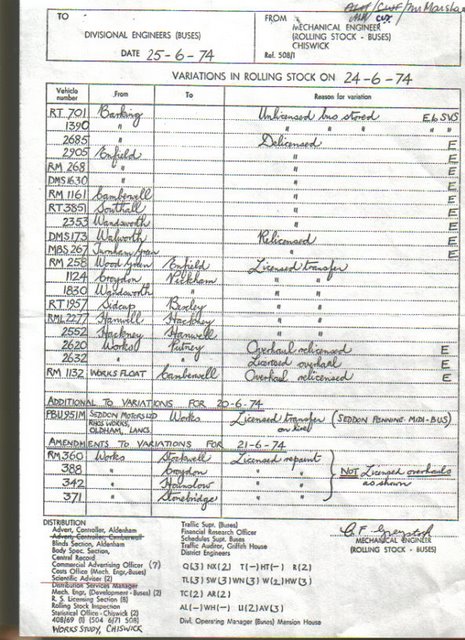 TO
DIVISIONAL ENGINEERS (BUSES)
DATE 25-6-74
FROM
MECHANICAL ENGINEER
(ROLLING STOCK - BUSES)
CHISWICK
Ref. 508/1
VARIATIONS IN ROLLING STOCK ON 24-6-74
Vehicle number From To Reason for variation
RT 701 Barking Unlicensed bus stored E.b SVS
1390 " " " " " "
2685 " Delicensed E
2905 Enfield E
RM 268 " E
DMS 1630 " E
RM 1161 Camberwell E
RT 3851 Southall E
2353 Wandsworth E
DMS 173 Walworth Relicensed E
MBS 267 Turnham Green E
RM 258 Wood Green Enfield Licensed transfer
1124 Croydon Peckham " "
1830 Wandsworth " " "
RT 1957 Sidcup Bexley " "
RML 2277 Hanwell Hackney " "
2552 Hackney Hanwell " "
2620 Works Putney Overhaul relicensed E
2632 " " Licensed overhaul
RM 1132 WORKS FLOAT Camberwell Overhaul relicensed E
ADDITIONAL TO VARIATIONS FOR 20-6-74
PBU 951M SEDDON MOTORS LTD Works Licensed transfer (SEDDON PENNINE-MIDI-BUS)
RHGS WORKS, on loan
OLDHAM, LANCS
AMENDMENTS TO VARIATIONS FOR 21-6-74
RM 360 Works Stockwell Licensed repaint
388 " Croydon " " NOT Licensed overhauls
342 " Hounslow " " as shown
371 " Stonebridge " "
DISTRIBUTION
Advert. Controller, Aldenham
Advert. Controller, Camberwell
Blinds Section, Aldenham
Body Spec. Section,
Central Record
Commercial Advertising Officer (7)
Costs Office (Mech. Engr.-Buses)
Scientific Adviser (2)
Distribution Services Manager
Mech. Engr, (Development-Buses) (2)
R. S. Licensing Section (8)
Rolling Stock Inspection
Statistical Office - Chiswick (2)
408/69 (1) (504 6/71 508)
WORKS STUDY, CHISWICK
Traffic Supt. (Buses)
Financial Research Officer
Schedules Supt. Buses
Traffic Auditor, Griffith House
District Engineers
Q(3) NX(2) T(-) HT(-) R(2)
TL(3) SW(3) WN(3) W(2) HW(3)
TC(2) AR(2)
AL(-) WH(-) U(2) AV(3)
Divl. Operating Manager (Buses) Mansion House
MECHANICAL ENGINEER
(ROLLING STOCK - BUSES)